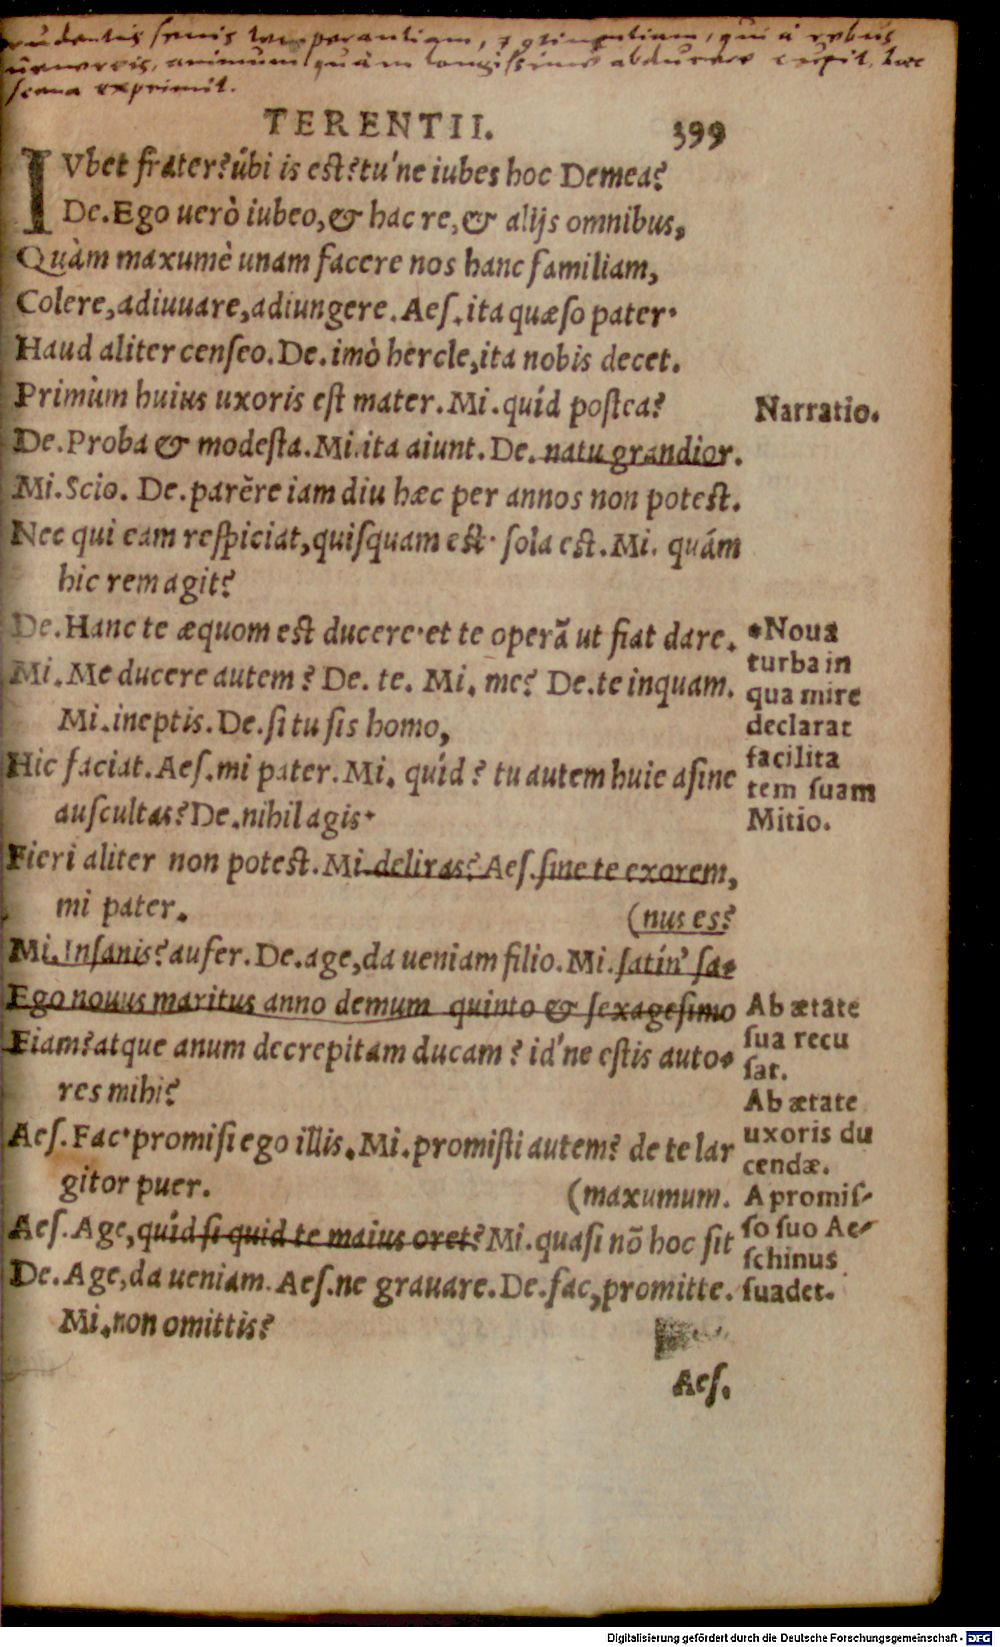 prudentis senis temperantiam, & continentiam, qui à rebus
uenereis, animum quàm longissime abducere cupit, haec
scena exprimit.
TERENTII. 399
IVbet frater? ubi is est? tu'ne iubes hoc Demea?
De. Ego uerò iubeo, & hac re, & alijs omnibus,
Quàm maxumè unam facere nos hanc familiam,
Colere, adiuuare, adiungere. Aeſ. ita quæſo pater.
Haud aliter cenſeo. De. imò hercle, ita nobis decet.
Primùm huius uxoris est mater. Mi. quid poſtea?
Narratio.
De. Proba & modeſta. Mi. ita aiunt. De. natu grandior.
Mi. Scio. De. parĕre iam diu hæc per annos non potest.
Nec qui eam reſpiciat, quiſquam est. ſola est. Mi. quám
hic rem agit?
De. Hanc te æquom est ducere. et te operã ut fiat dare.
Mi. Me ducere autem? De. te. Mi. me? De. te inquam.
Mi. ineptis. De. ſi tu ſis homo,
Hic faciat. Aeſ. mi pater. Mi. quid? tu autem huic aſine
auſcultas? De. nihil agis.
*Noua
turba in
qua mire
declarat
facilita
tem ſuam
Mitio.
Fieri aliter non potest. Mi. deliras? Aeſ. ſine te exorem,
mi pater. (nus es?
Mi. Inſanis? aufer. De. age, da ueniam filio. Mi. ſatín' ſa-
Ego nouus maritus anno demum quinto & ſexageſimo
Fiam? atque anum decrepitam ducam? id'ne eſtis auto-
res mihi?
Ab ætate
ſua recu
ſat.
Ab ætate
uxoris du
cendæ.
Aeſ. Fac. promiſi ego illis. Mi. promiſti autem? de te lar
gitor puer. (maxumum.
Aeſ. Age, quid ſi quid te maius oret? Mi. quaſi nõ hoc ſit
De. Age, da ueniam. Aeſ. ne grauare. De. fac, promitte.
Mi. non omittis?
A promiſ-
ſo ſuo Ae-
ſchinus
ſuadet.
Aeſ.
Digitalisierung gefördert durch die Deutsche Forschungsgemeinschaft - DFG